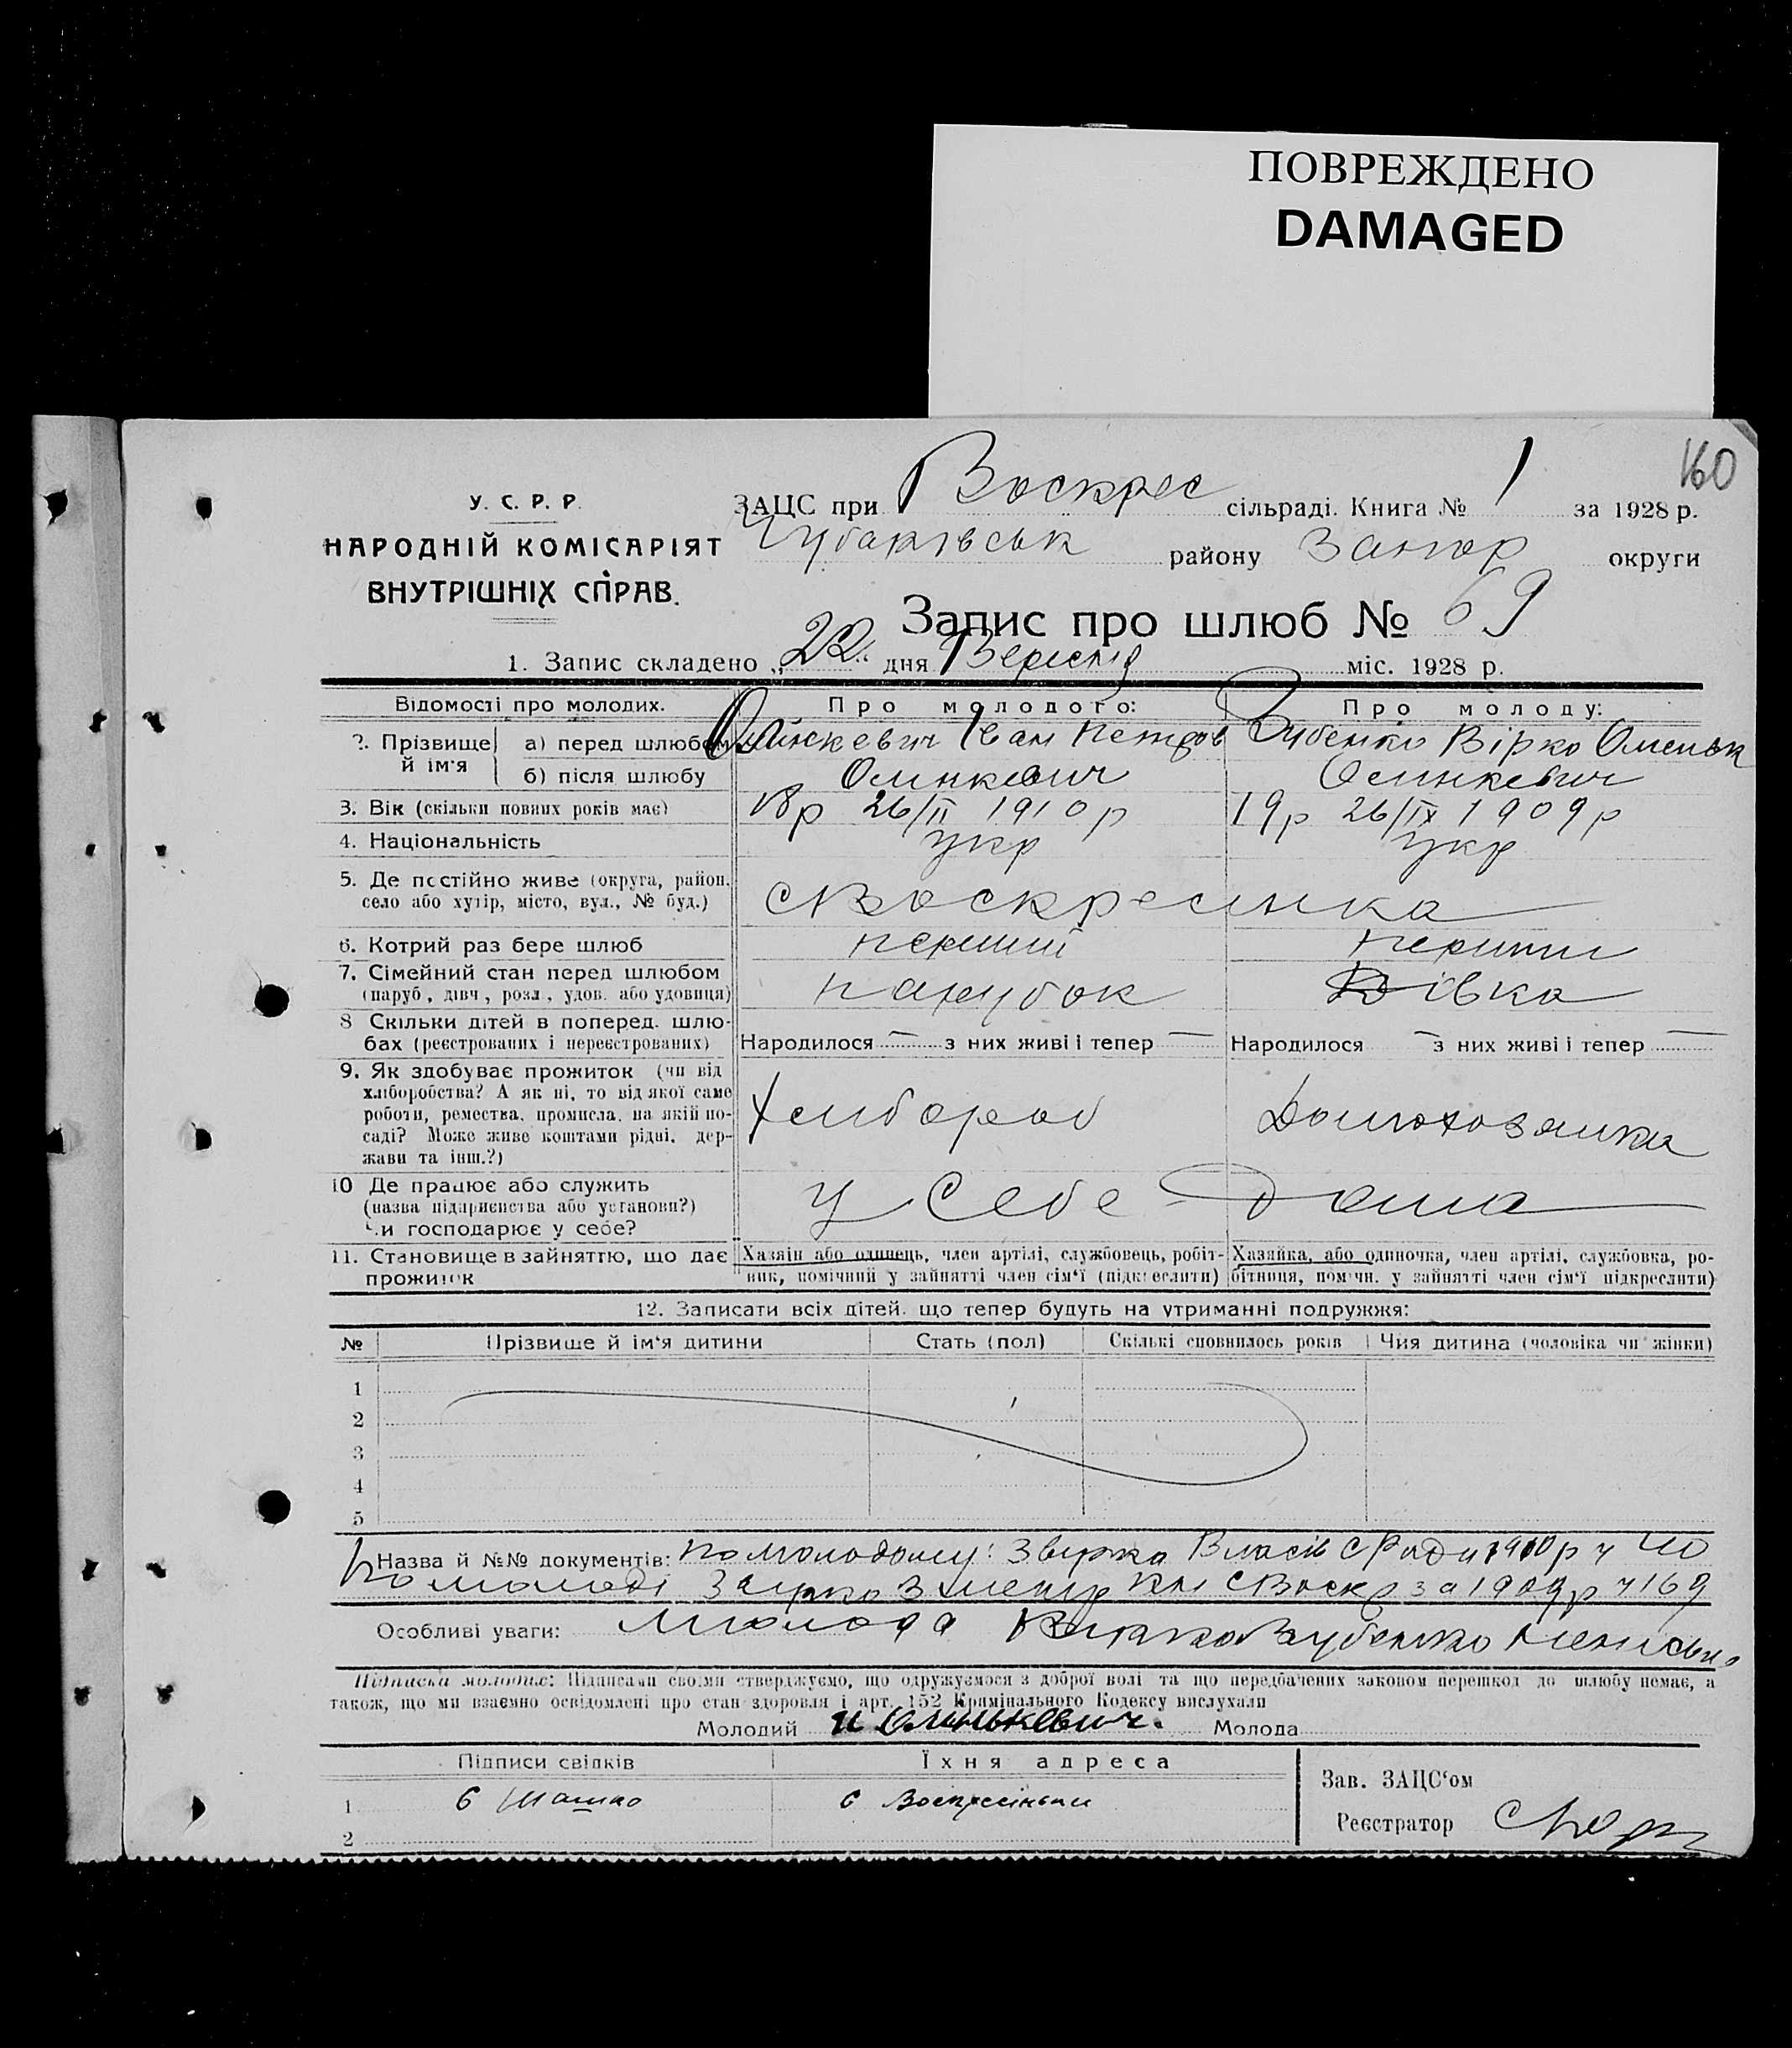 ПОВРЕЖДЕНО
DAMAGED
160
У. С. Р. Р.
НАРОДНІЙ КОМІСАРІЯТ
ВНУТРІШНІХ СПРАВ.
ЗАЦС при Воскрес сільраді. Книга № 1 за 1928 р.
Чубаківськ району Запор округи
Запис про шлюб № 69
1. Запис складено „22“ дня Вересня міс. 1928 р.
Відомості про молодих. Про молодого: Про молоду:
2. Прізвище й ім'я
а) перед шлюбом Олинкевич Іван Петров Зубенко Вірко
б) після шлюбу Олинкевич Олинкевич
3. Вік (скільки повних років має) 18р 26/II 1910р 19р 26/IX 1909р
4. Національність укр укр
5. Де постійно живе (округа, район,
село або хутір, місто, вул., № буд.) с Воскресинка
6. Котрий раз бере шлюб перший перший
7. Сімейний стан перед шлюбом
(паруб., дівч., розл., удов. або удовиця) парубок Дівка
8 Скільки дітей в поперед. шлю-
бах (реєстрованих і нереєстрованих) Народилося — з них живі і тепер — Народилося — з них живі і тепер —
9. Як здобуває прожиток (чи від
хліборобства? А як ні, то від якої саме
роботи, ремества, промисла, на якій по-
саді? Може живе коштами рідні, дер-
жави та інш.?) Хлибороб Домохозяика
10 Де працює або служить
(назва підприємства або установи?)
Чи господарює у себе? у себе дома
11. Становище в зайняттю, що дає
прожиток
Хазяїн або одинець, член артілі, службовець, робіт-
ник, помічний у зайнятті член сім'ї (підкреслити)
Хазяйка, або одиночка, член артілі, службовка, ро-
бітниця, помічн. у зайнятті член сім'ї підкреслити)
12. Записати всіх дітей, що тепер будуть на утриманні подружжя:
№ Прізвище й ім'я дитини Стать (пол) Скількі сповнилось років Чия дитина (чоловіка чи жінки)
1
2
3
4
5
Назва й №№ документів: по молодому: Звирка 1910р ч 40
по молоді Звирка з метр кни с Воскр за 1909р ч 169
Особливі уваги: молода Вирка Зубенко неписьмо
Підписка молодих: Підписами своїми стверджуємо, що одружуємося з доброї волі та що передбачених законом перешкод до шлюбу немає, а
також, що ми взаємно освідомлені про стан здоровля і арт. 152 Крамінального Кодексу вислухали
Молодий И Олинькевич. Молода
Підписи свідків Їхня адреса
Зав. ЗАЦС'ом
1 с Воскресінька
Реєстратор
2